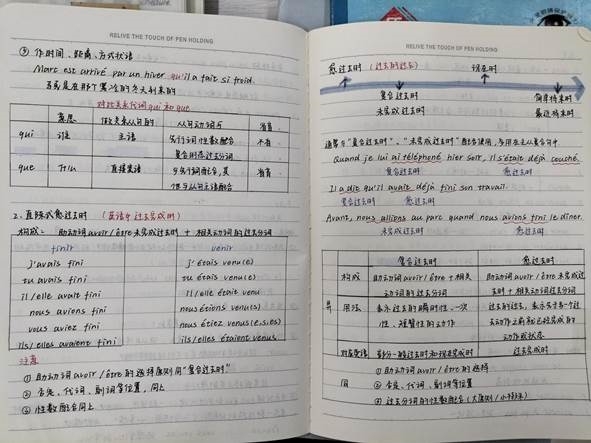 RELIVE THE TOUCH OF PEN HOLDING
③ 作时间、距离、方式状语
Marc est arrivé par un hiver qu'il a fait si froid.
马克是在那个寒冷的冬天到来的
对比关系代词 qui 和 que
意思 做关系从句的 从句动词与 省音
qui 主语 先行词性数配合 不省
复合时态过去分词
que 直接宾语 与先行词配合, 其 省
他与从句主语配合
2. 直陈式愈过去时 (英语中过去完成时)
构成: 助动词 avoir / être 未完成过去时 + 相关动词的过去分词
finir venir
j'avais fini j'étais venu(e)
tu avais fini tu étais venu(e)
il / elle avait fini il / elle était venu
nous avions fini nous étions venu(s)
vous aviez fini vous étiez venu(e.s.es)
ils / elles avaient fini ils / elles étaient venus
注意
① 助动词 avoir / être 的选择原则同“复合过去时”
② 否定、代词、副词等位置, 同上
③ 性数配合同上
RELIVE THE TOUCH OF PEN HOLDING
愈过去时 (过去的过去) 现在时
复合过去时 简单将来时
未完成过去时 最近将来时
通常与“复合过去时”、“未完成过去时”配合使用, 多用在主从复合句中
Quand je lui ai téléphoné hier soir, il s'était déjà couché.
复合过去时 愈过去时
Il a dit qu'il avait déjà fini son travail.
复合过去时 愈过去时
Avant, nous allions au parc quand nous avions fini le dîner.
未完成过去时 愈过去时
复合过去时 愈过去时
构成 助动词 avoir / être + 相关 助动词 avoir / être 未完成过
动词的过去分词 去时 + 相关动词过去分词
异 用法 表示过去的瞬时性、一次 过去的过去, 表示先于另一个过
性、短暂性的动作 去动作之前就已经完成的
动作或状态
对应英语 部分一般过去时和现在完成时 过去完成时
同 ① 助动词 avoir / être 的选择
② 否定、代词、副词等位置
③ 过去分词的性数配合 (大原则 / 小特殊)